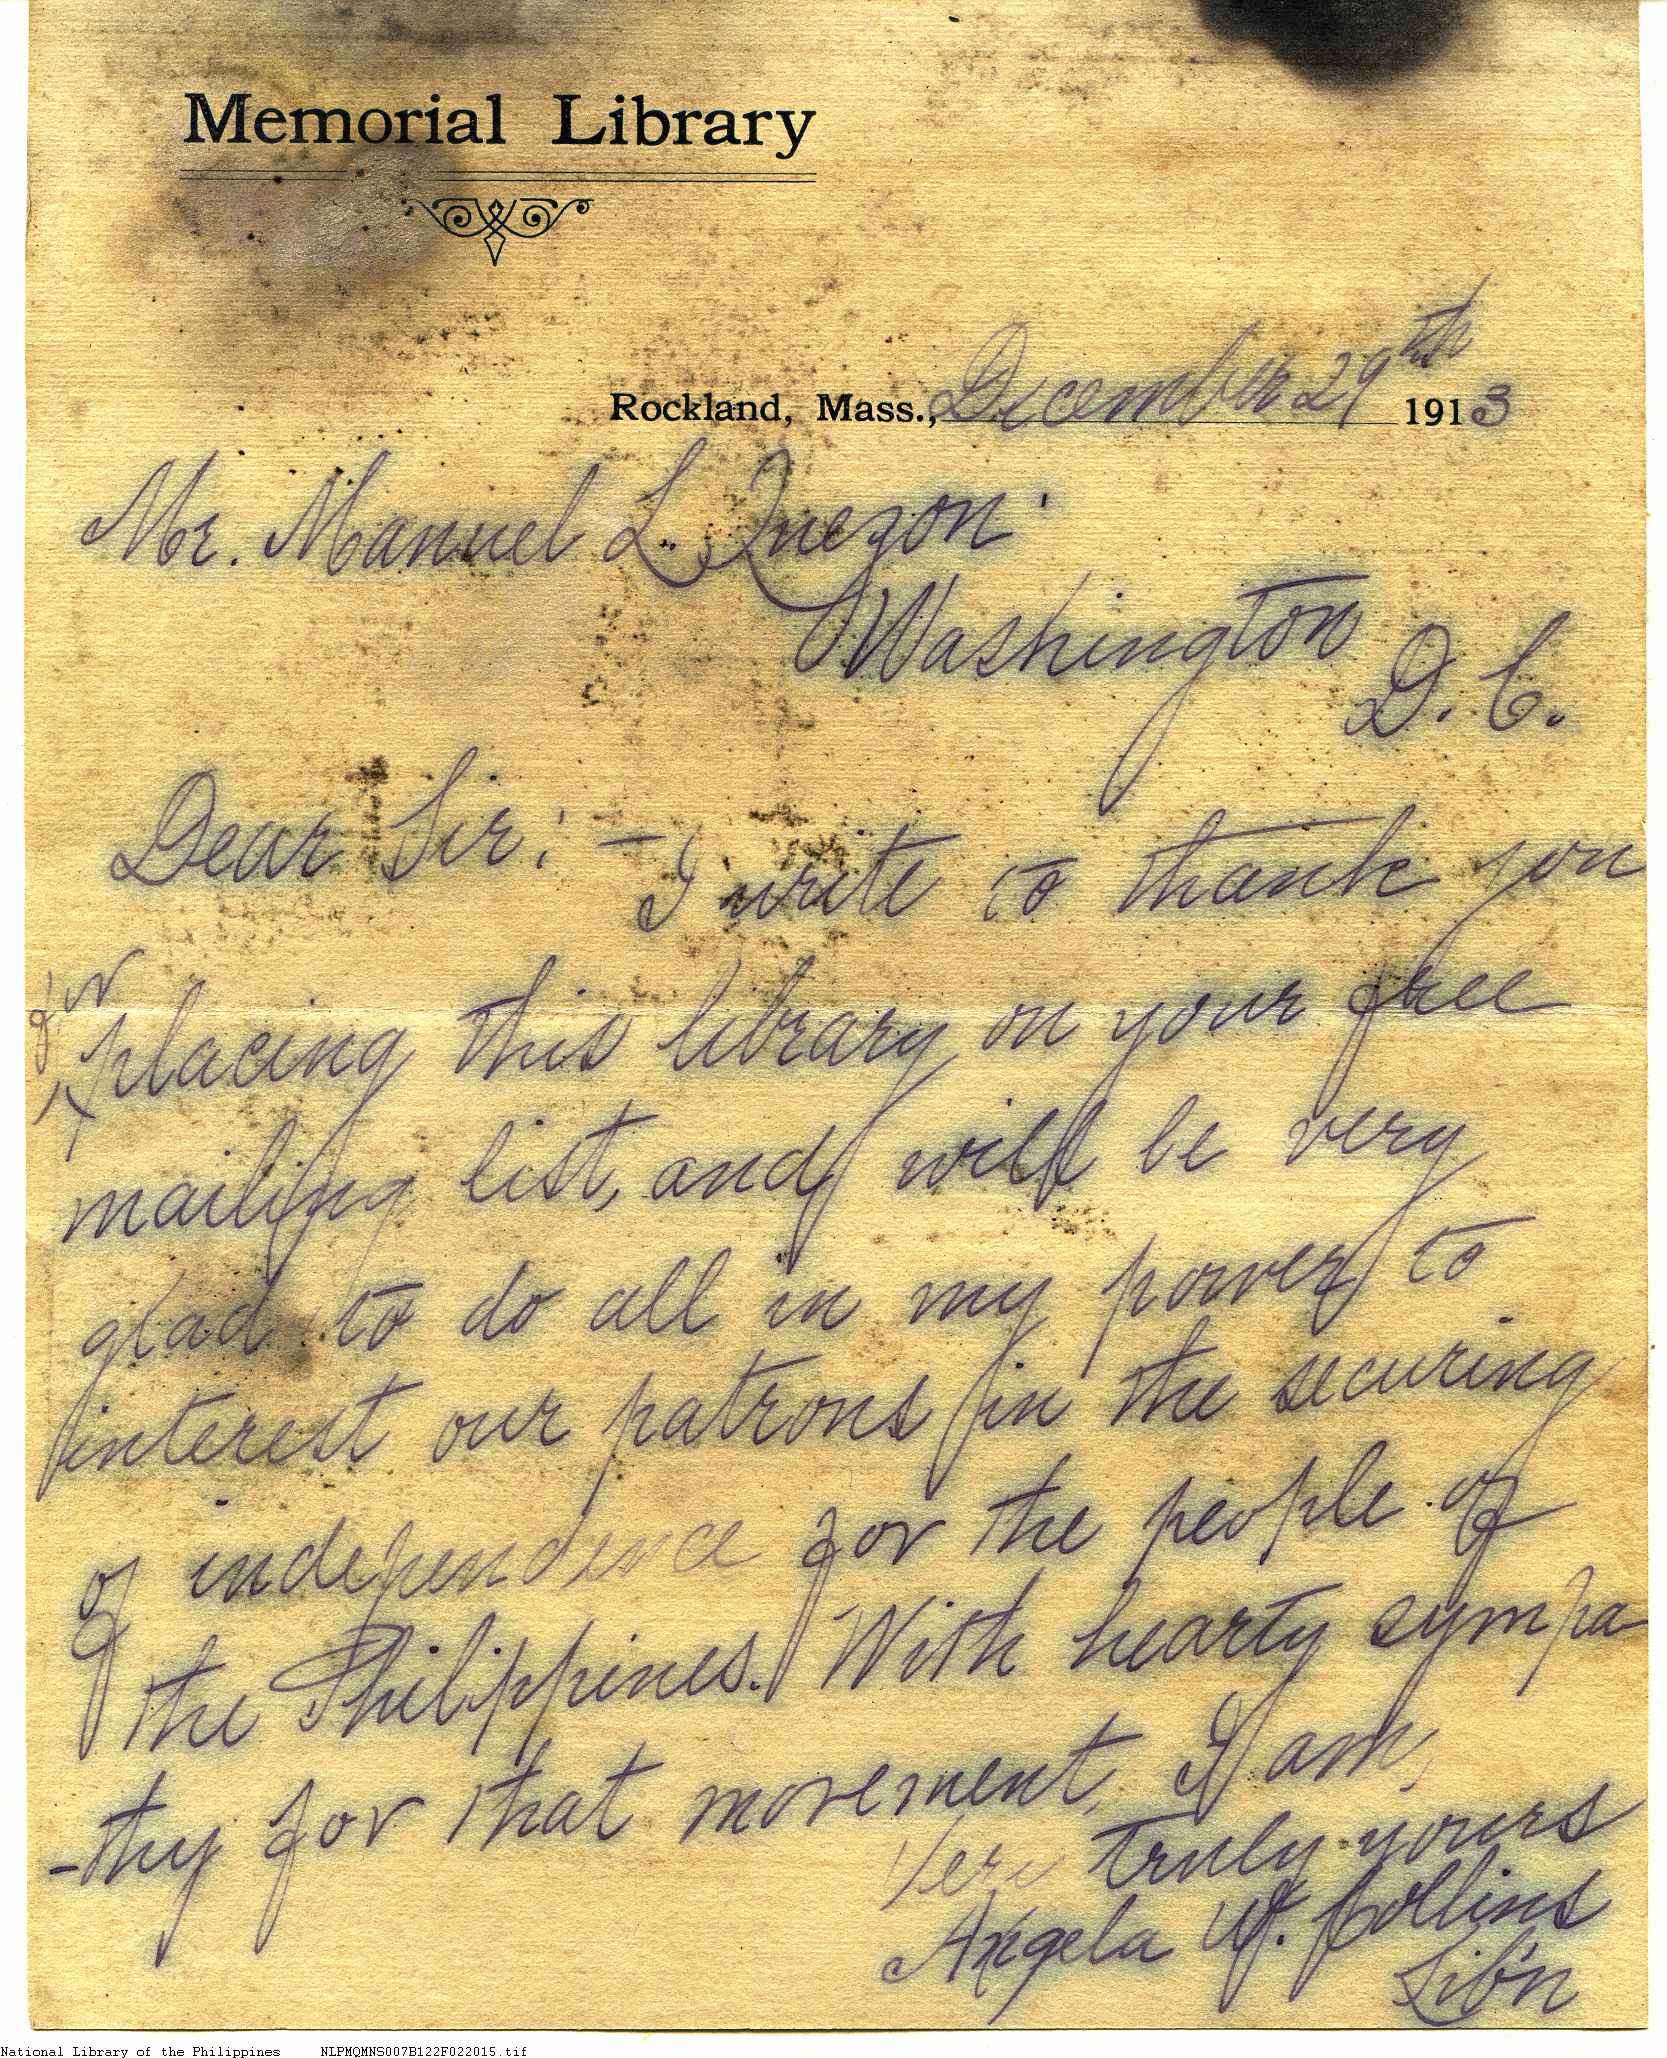 Memorial Library
Rockland, Mass., December 29th 1913
Mr. Manuel L. Quezon
Washington
D. C.
Dear Sir: –
I write to thank you
for
placing this library on your free
mailing list, and will be very
glad to do all in my power to
interest our patrons in the securing
of independence for the people of
the Philippines. With hearty sympa
-thy for that movement, I am,
Very truly yours
Angela W. Collins
Lib'n
National Library of the Philippines NLPMQMNS007B122F022015.tif